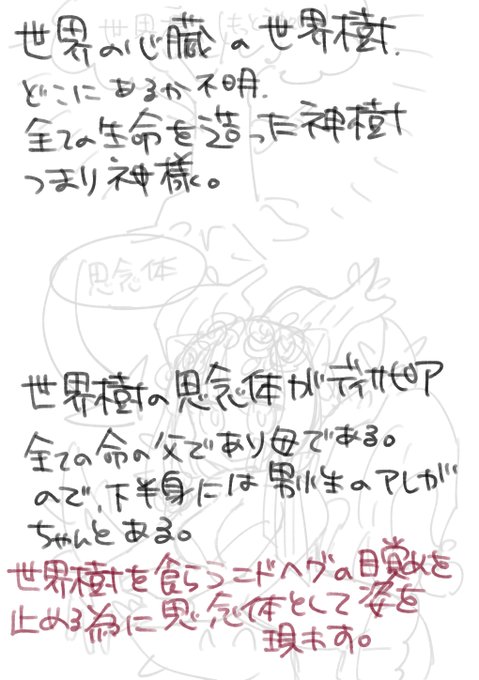 世界の心臓の世界樹.
どこにあるか不明.
全ての生命を造った神樹
つまり神様。
思念体
世界樹の思念体がディサピア
全ての命の父であり母である。
ので、下半身には男性のアレが
ちゃんとある。
世界樹を食らうニドヘグの目覚めを
止める為に思念体として姿を
現ます。